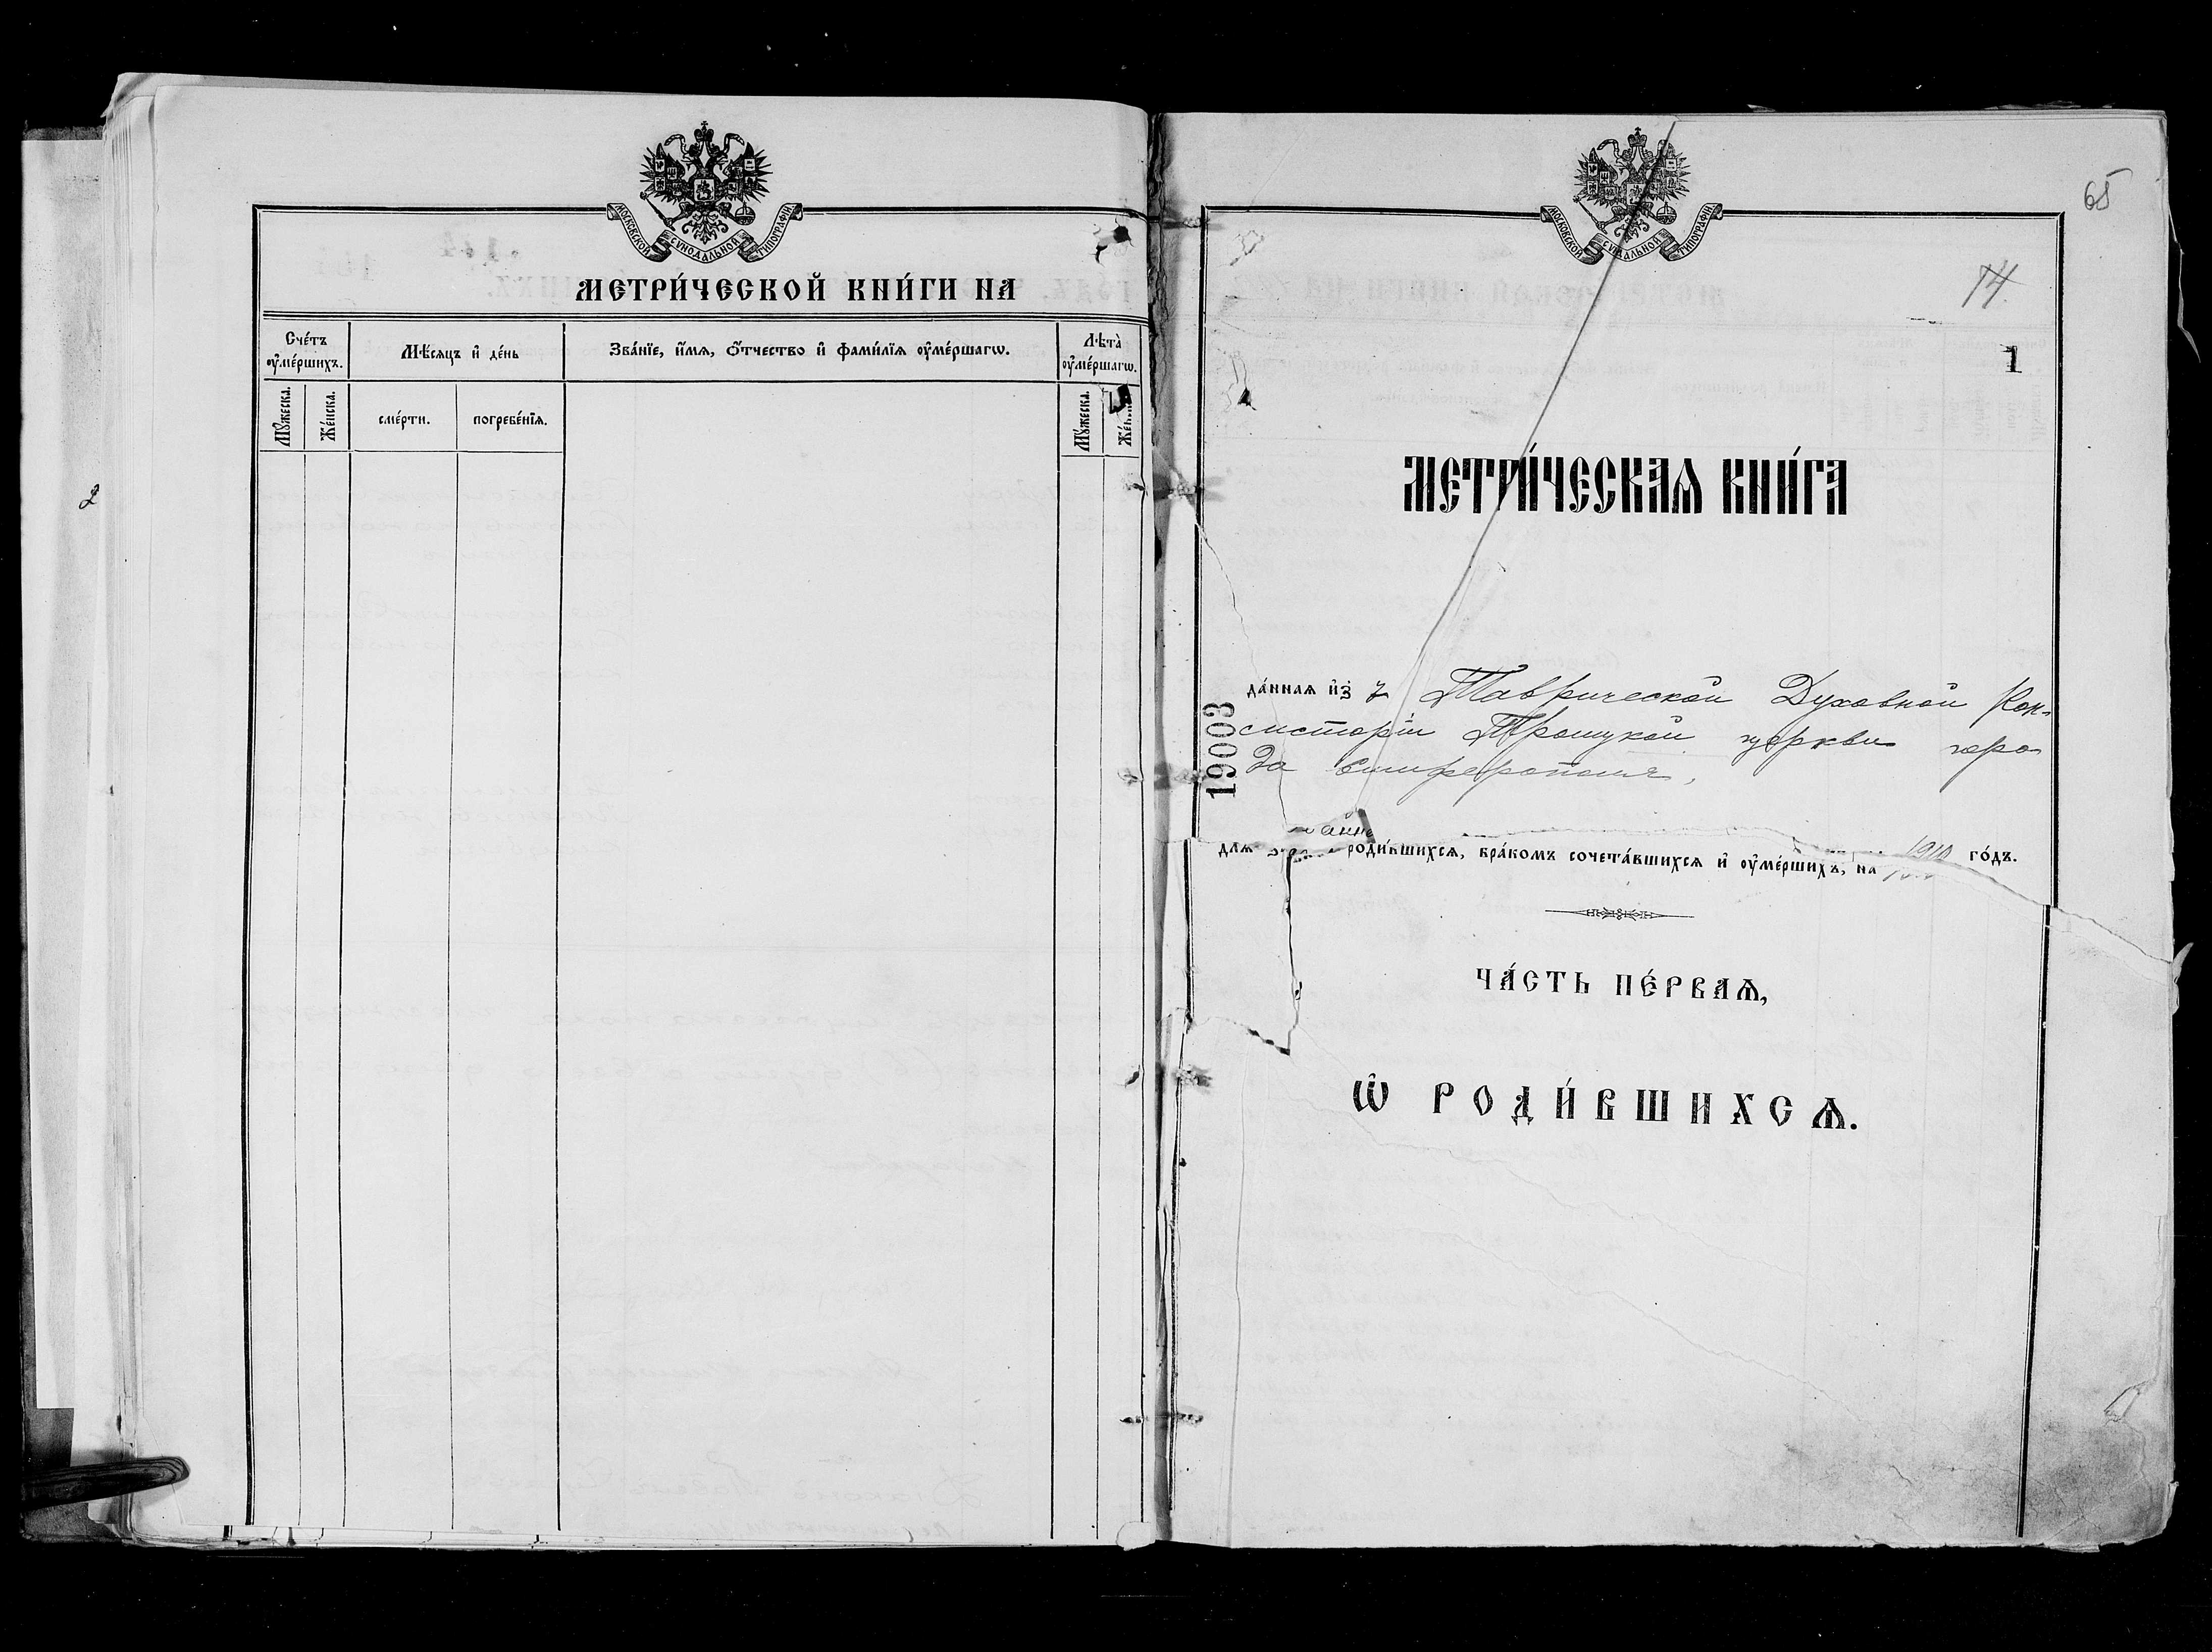 МОСКОВСКОЙ СѴНОДАЛЬНОЙ ТИПОГРАФІИ
МЕТРИ́ЧЕСКОЙ КНИ́ГИ НА
Сче́тъ ᲂу҆ме́ршихъ.
Мѣ́сѧцъ и҆ де́нь
Зва́нїе, и҆́мѧ, ѻ҆́тчество и҆ фами́лїѧ ᲂу҆ме́ршагѡ.
Лѣ́та̀ ᲂу҆ме́ршагѡ.
Мꙋ́жеска.
Же́нска.
сме́рти.
погребе́нїѧ.
Мꙋ́жеска.
2
МОСКОВСКОЙ СѴНОДАЛЬНОЙ ТИПОГРАФІИ
65
14.
1
МЕТРИ́ЧЕСКАѦ КНИ́ГА
да́ннаѧ и҆з̾ Таврической Духовной Кон-
систоріи Троицкой церкви горо
да Симферополя,
19003
для родившихсѧ, бра́комъ сочета́вшихсѧ и҆ ᲂу҆ме́ршихъ, на 1910 го́дъ.
ЧА́СТЬ ПЕ́РВАѦ,
Ѽ РОДИ́ВШИХСѦ.